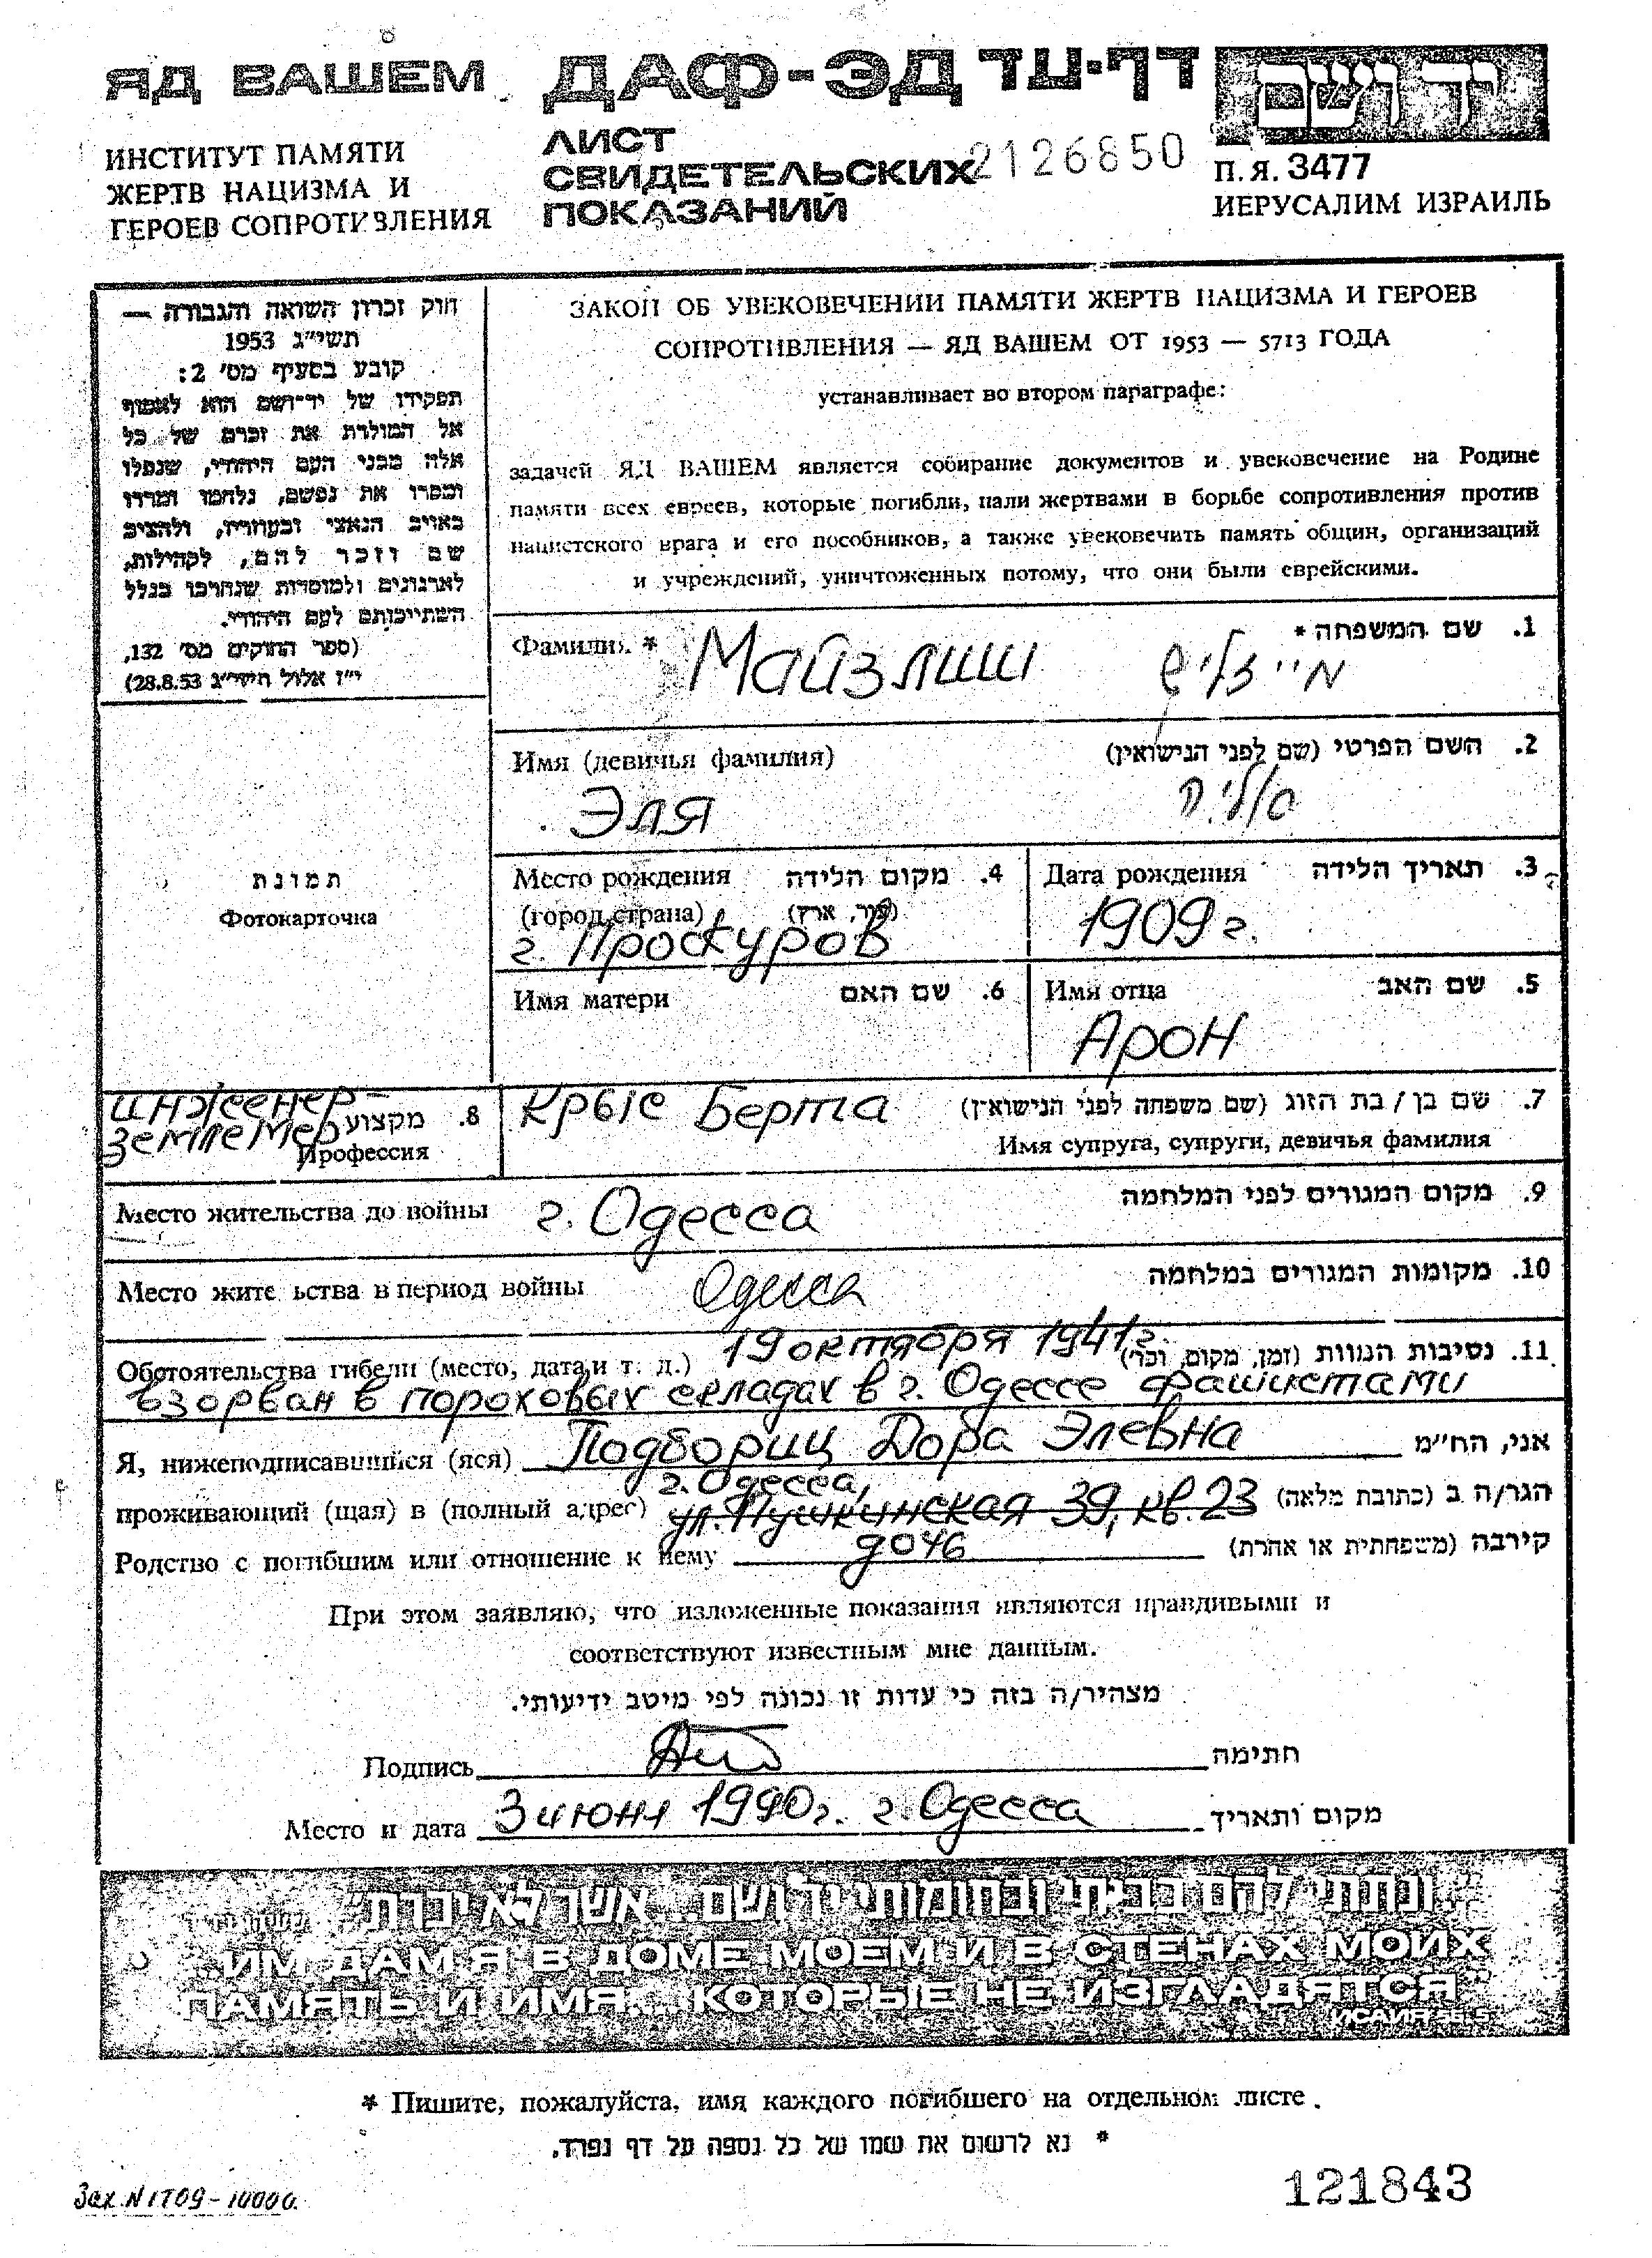 ЯД ВАШЕМ
ДАФ-ЭД דף-עד
יד ושם
ИНСТИТУТ ПАМЯТИ
ЖЕРТВ НАЦИЗМА И
ГЕРОЕВ СОПРОТИВЛЕНИЯ
ЛИСТ
СВИДЕТЕЛЬСКИХ
ПОКАЗАНИЙ
2126850
П.Я. 3477
ИЕРУСАЛИМ ИЗРАИЛЬ
חוק זכרון השואה והגבורה —
תשי״ג 1953
קובע בסעיף מס׳ 2:
תפקידו של יד־ושם הוא לאסוף
אל המולדת את זכרם של כל
אלה מבני העם היהודי, שנפלו
ומסרו את נפשם, נלחמו ומרדו
באויב הנאצי ובעוזריו, ולהציב
שם וזכר להם, לקהילות,
לארגונים ולמוסדות שנחרבו בגלל
השתייכותם לעם היהודי.
(ספר החוקים מס׳ 132,
י״ז אלול תשי״ג 28.8.53)
ЗАКОН ОБ УВЕКОВЕЧЕНИИ ПАМЯТИ ЖЕРТВ НАЦИЗМА И ГЕРОЕВ
СОПРОТИВЛЕНИЯ — ЯД ВАШЕМ ОТ 1953 — 5713 ГОДА
устанавливает во втором параграфе:
задачей ЯД ВАШЕМ является собирание документов и увековечение на Родине
памяти всех евреев, которые погибли, пали жертвами в борьбе сопротивления против
нацистского врага и его пособников, а также увековечить память общин, организаций
и учреждений, уничтоженных потому, что они были еврейскими.
Фамилия * Майзлиш מייזליש 1. שם המשפחה *
Имя (девичья фамилия) 2. השם הפרטי (שם לפני הנישואין)
Эля
Место рождения 4. מקום הלידה
(город, страна) (עיר, ארץ)
г. Проскуров
Дата рождения 3. תאריך הלידה
1909 г.
Имя матери 6. שם האם
Имя отца 5. שם האב
Арон
תמונת
Фотокарточка
инженер-
землемер 8. מקצוע
Профессия
Крыс Берта 7. שם בן / בת הזוג (שם משפחה לפני הנישואין)
Имя супруга, супруги, девичья фамилия
Место жительства до войны г. Одесса 9. מקום המגורים לפני המלחמה
Место жительства в период войны Одесса 10. מקומות המגורים במלחמה
Обстоятельства гибели (место, дата и т. д.) 19 октября 1941 г. 11. נסיבות המוות (זמן, מקום, וכו׳)
взорван в пороховых складах в г. Одессе фашистами
Я, нижеподписавшийся (яся) Подбориц Дора Элевна אני, הח״מ
г. Одесса,
проживающий (щая) в (полный адрес) ул. Пушкинская 39, кв. 23 הגר/ה ב (כתובת מלאה)
Родство с погибшим или отношение к нему дочь קירבה (משפחתית או אחרת)
При этом заявляю, что изложенные показания являются правдивыми и
соответствуют известным мне данным.
מצהיר/ה בזה כי עדות זו נכונה לפי מיטב ידיעותי.
Подпись חתימה
Место и дата 3 июня 1990 г. г. Одесса מקום ותאריך
״...ונתתי להם בביתי ובחומותי יד ושם... אשר לא יכרת״
"...ИМ ДАМ Я В ДОМЕ МОЕМ И В СТЕНАХ МОИХ
ПАМЯТЬ И ИМЯ... КОТОРЫЕ НЕ ИЗГЛАДЯТСЯ"
ИСАИЯ 56.5
* Пишите, пожалуйста, имя каждого погибшего на отдельном листе.
* נא לרשום את שמו של כל נספה על דף נפרד.
Зак. N 1709-10000.
121843